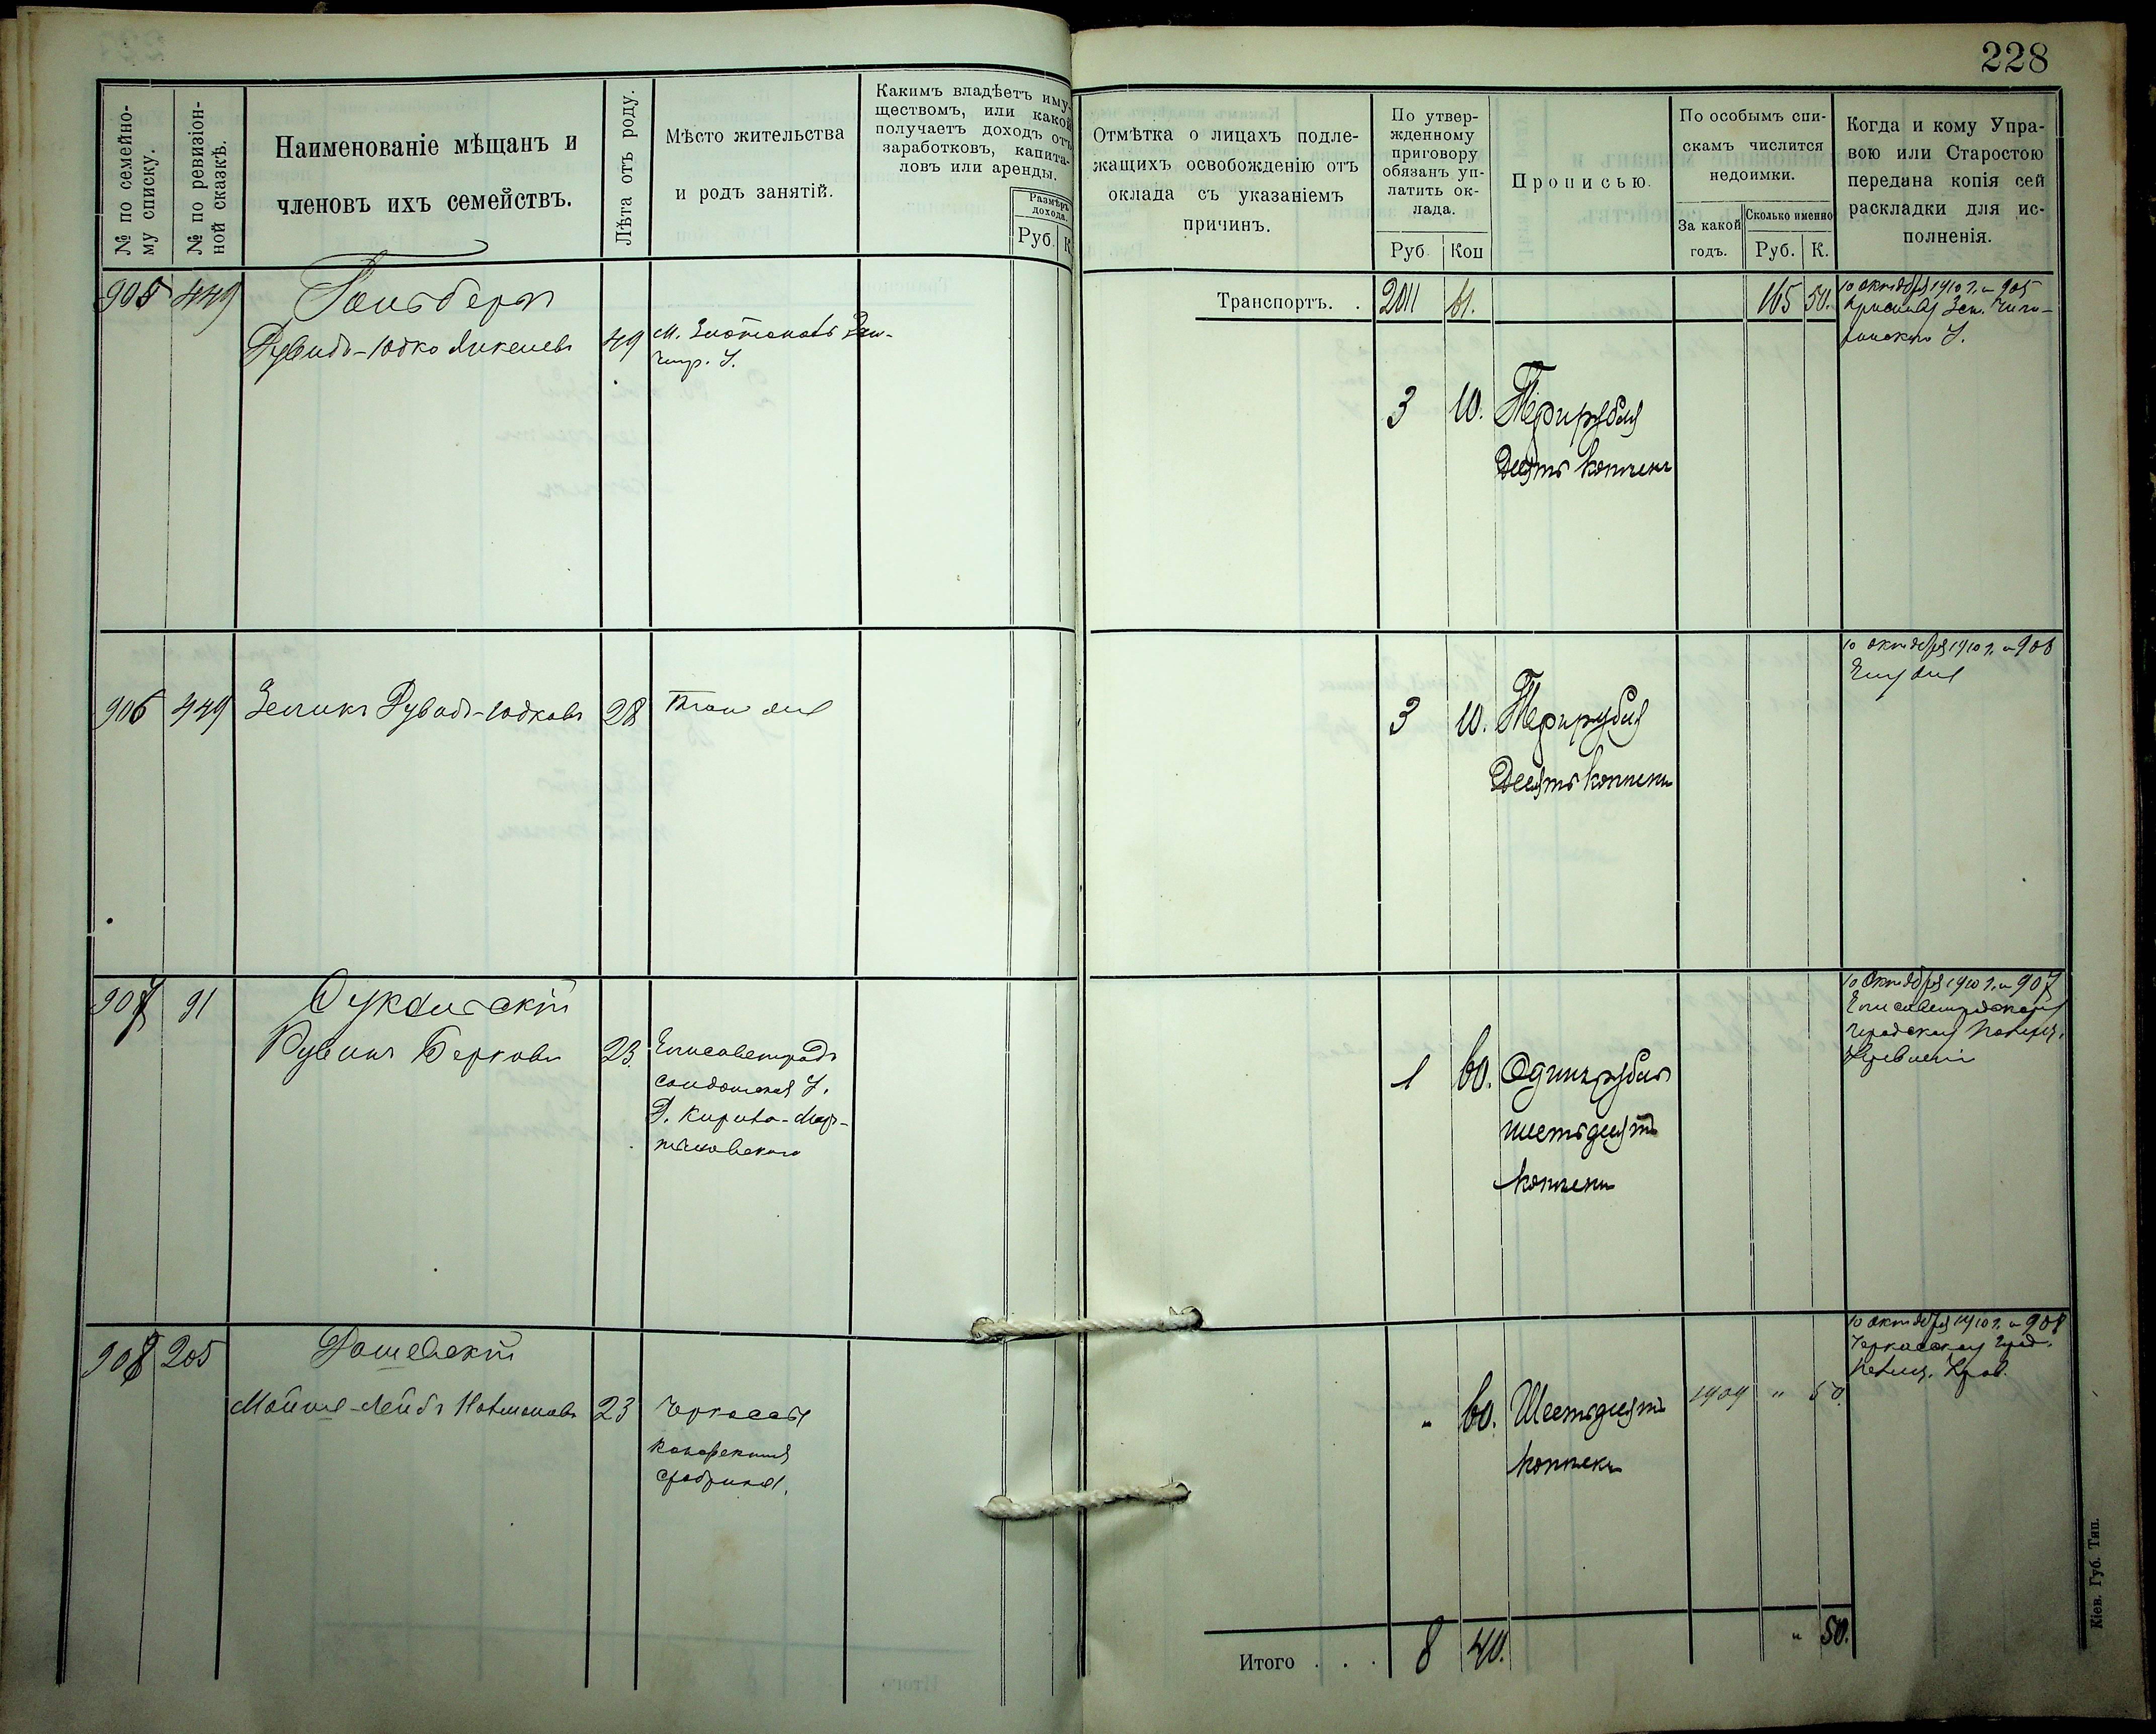 228
№ по семейно-
му списку.
№ по ревизіон-
ной сказкѣ.
Наименованіе мѣщанъ и
членовъ ихъ семействъ.
Лѣта отъ роду.
Мѣсто жительства
и родъ занятій.
Какимъ владѣетъ иму-
ществомъ, или какой
получаетъ доходъ отъ
заработковъ, капита-
ловъ или аренды.
Размѣръ
дохода.
Руб. К
Отмѣтка о лицахъ подле-
жащихъ освобожденію отъ
оклада съ указаніемъ
причинъ.
По утвер-
жденному
приговору
обязанъ уп-
латить ок-
лада.
Руб. Коп
Прописью.
По особымъ спи-
скамъ числится
недоимки.
За какой
годъ.
Сколько именно
Руб. К.
Когда и кому Упра-
вою или Старостою
передана копія сей
раскладки для ис-
полненія.
Транспортъ. . 2011 61. 165 50.
905 449 Гольдберг
Рувидъ-Юдко 49 М.
10 октября 1910 г. № 905
3 10. Три рубля
Десять копѣекъ
906 449 Зеликъ Рувидъ-Юдковъ 28 Тамъ же
3 10. Три рубля
Десять копѣекъ
10 октября 1910 г. № 906
Ему же
907 91
Рувинъ Берковъ 23. Елисаветградъ
1 60. Одинъ рубль
шестьдесятъ
копѣекъ
10 Октября 1910 г. № 907
Елисаветградскому
городскому Полиц.
908 205 Дашевскій
Мойше-Лейбъ 23 Черкассы
фабрика.
" 60. Шестьдесятъ
копѣекъ
1909 " 50.
10 октября 1910 г. № 908
Черкасскому Город.
Полиц. Управ.
Итого . . . 8 40. " 50.
Кіев. Губ. Тип.